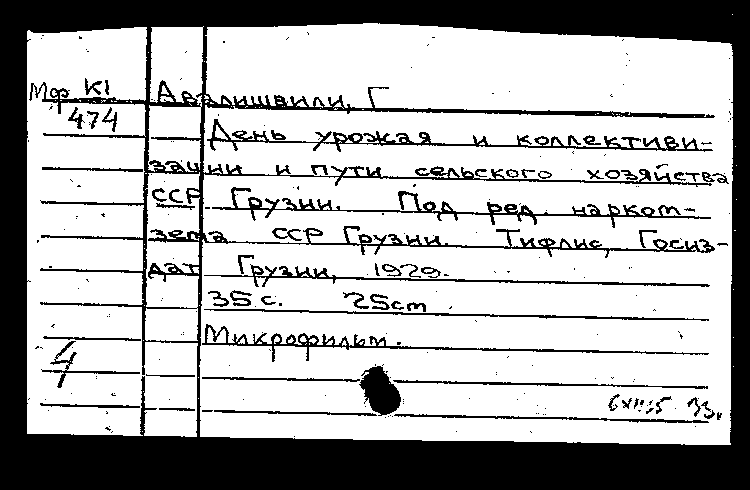 Мф К1
474
Авалишвили, Г
День урожая и коллективи-
зации и пути сельского хозяйства
ССР Грузии. Под ред. нарком-
зета ССР Грузии. Тифлис, Госиз-
дат Грузии, 1929.
35 с. 25cm
Микрофильм.
4